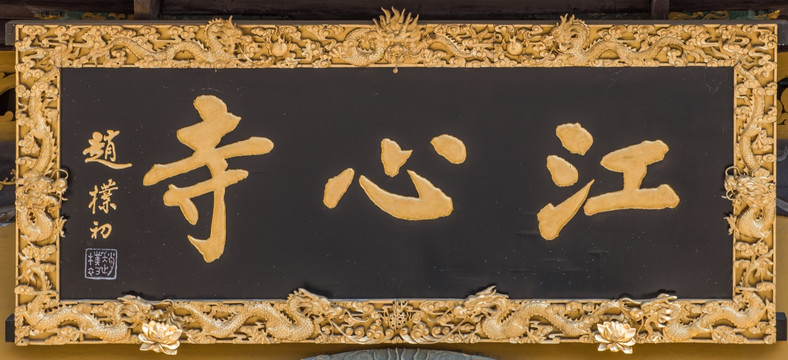 江心寺
趙樸初